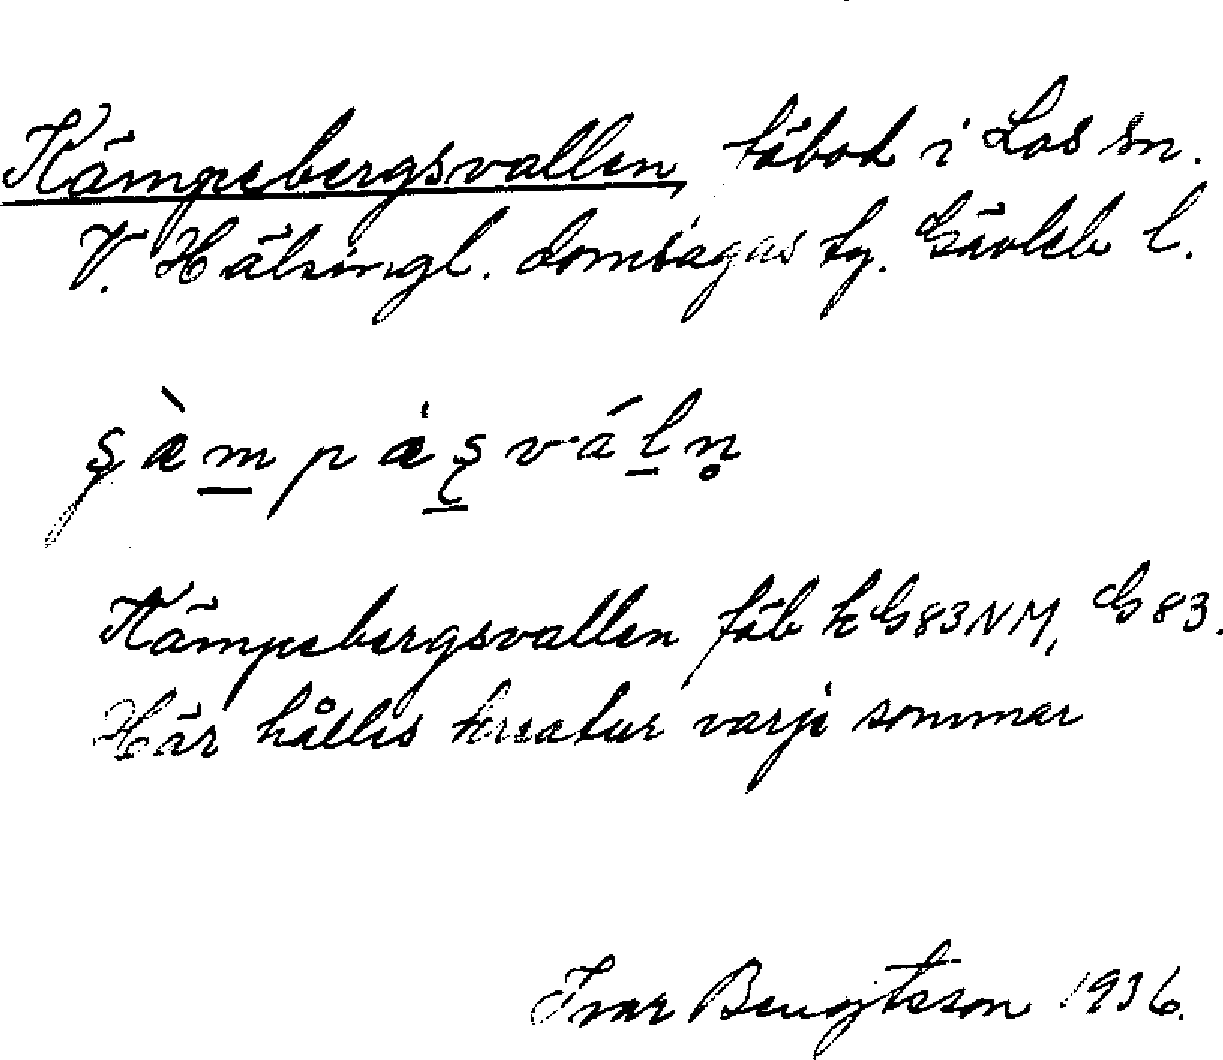 Kämpebergsvallen, fäbod i Los sn.
V. Hälsingl. domsagas tg. Gävleb l.
Kämpebergsvallen fäb k G83NM, G83.
Här hålles kreatur varje sommar
Ivar Bengtsson 1936.